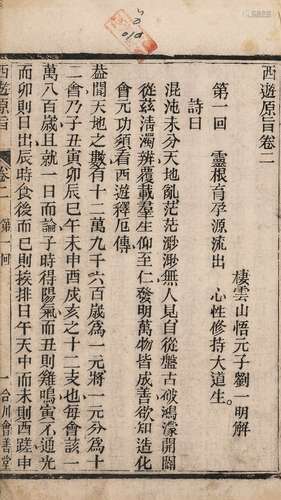 西遊原旨卷二
棲雲山悟元子劉一明解
第一回　靈根育孕源流出　心性修持大道生。
詩曰
混沌未分天地亂茫茫渺渺無人見自從盤古破鴻濛開闢
從茲清濁辨覆載羣生仰至仁發明萬物皆成善欲知造化
會元功須看西遊釋厄傳
葢聞天地之數有十二萬九千六百歲爲一元將一元分爲十
二會乃子丑寅卯辰巳午未申酉戌亥之十二支也每會該一
萬八百歲且就一日而論子時得陽氣而丑則雞鳴寅不通光
而卯則日出辰時食後而巳則挨排日午天中而未則西蹉申
西遊原旨　卷二　第一回　一　合川會善堂